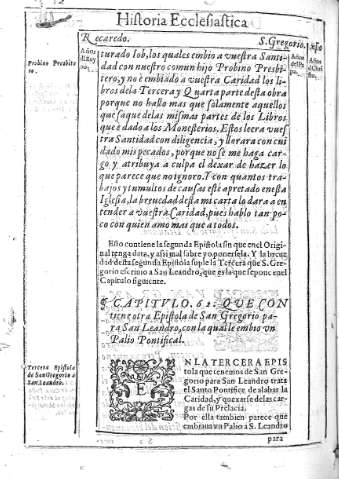 Historia Ecclesiastica
Recaredo.
S. Gregorio.
Años
Probino Presbitero.
turado Iob, los quales embio a vuestra Santidad
con nuestro comun hijo Probino Presbitero,
y no è embiado a vuestra Caridad los libros
dela Tercera y Quarta parte desta obra
porque no hallo mas que solamente aquellos
que saque delas mismas partes de los Libros
que è dado a los Monesterios. Estos leera vuestra
Santidad con diligencia, y llorara con cuidado
mis pecados, porque no se me haga cargo
y atribuya a culpa el dexar de hazer lo
que parece que no ignoro. Y con quantos trabajos
y tumultos de causas estè apretado enesta
Iglesia, la brevedad desta mi carta lo dara a entender
a vuestra Caridad, pues hablo tan poco
con quien amo mas que a todos.
Esto contiene la segunda Epistola sin que en el Original
tenga data, y assi mal sabre yo ponersela. Y la brevedad
desta segunda Epistola suple la Tercera que S. Gregorio
escrivio a San Leandro, que es la que se pone en el
Capitulo siguiente.
¶ CAPITVLO. 62: QVE CON
tiene otra Epistola de San Gregorio para
San Leandro, con la qual le embio vn
Palio Pontifical.
Tercera Epistola
de San Gregorio a
San Leandro.
EN LA TERCERA EPIS
tola que tenemos de San Gregorio
para San Leandro trata
el Santo Pontifice de alabar la
Caridad, y quexarse delas cargas
de su Prelacia.
Por ella tambien parece que
embiaua vn Palio a S. Leandro
para